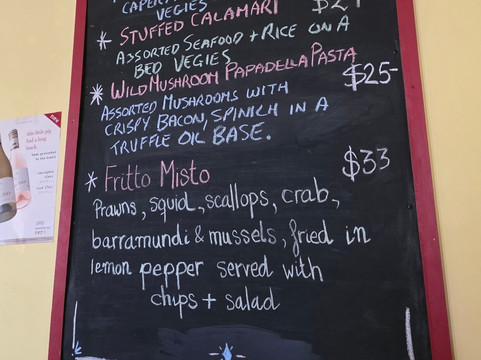 VEGIES
* STUFFED CALAMARI
ASSORTED SEAFOOD + RICE ON A
BED VEGIES
* WILD MUSHROOM PAPADELLA PASTA
$25-
ASSORTED MUSHROOMS WITH
CRISPY BACON, SPINICH IN A
TRUFFLE OIL BASE.
* Fritto Misto
$33
Prawns, squid, scallops, crab,
barramundi & mussels, fried in
lemon pepper served with
chips + salad